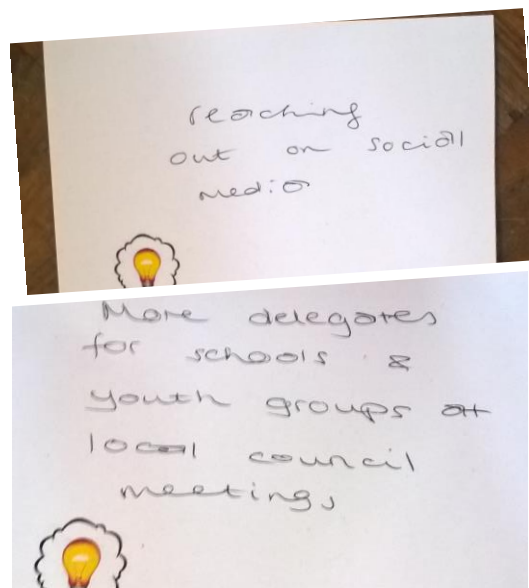 reaching
out on social
media
More delegates
for schools &
youth groups at
local council
meetings